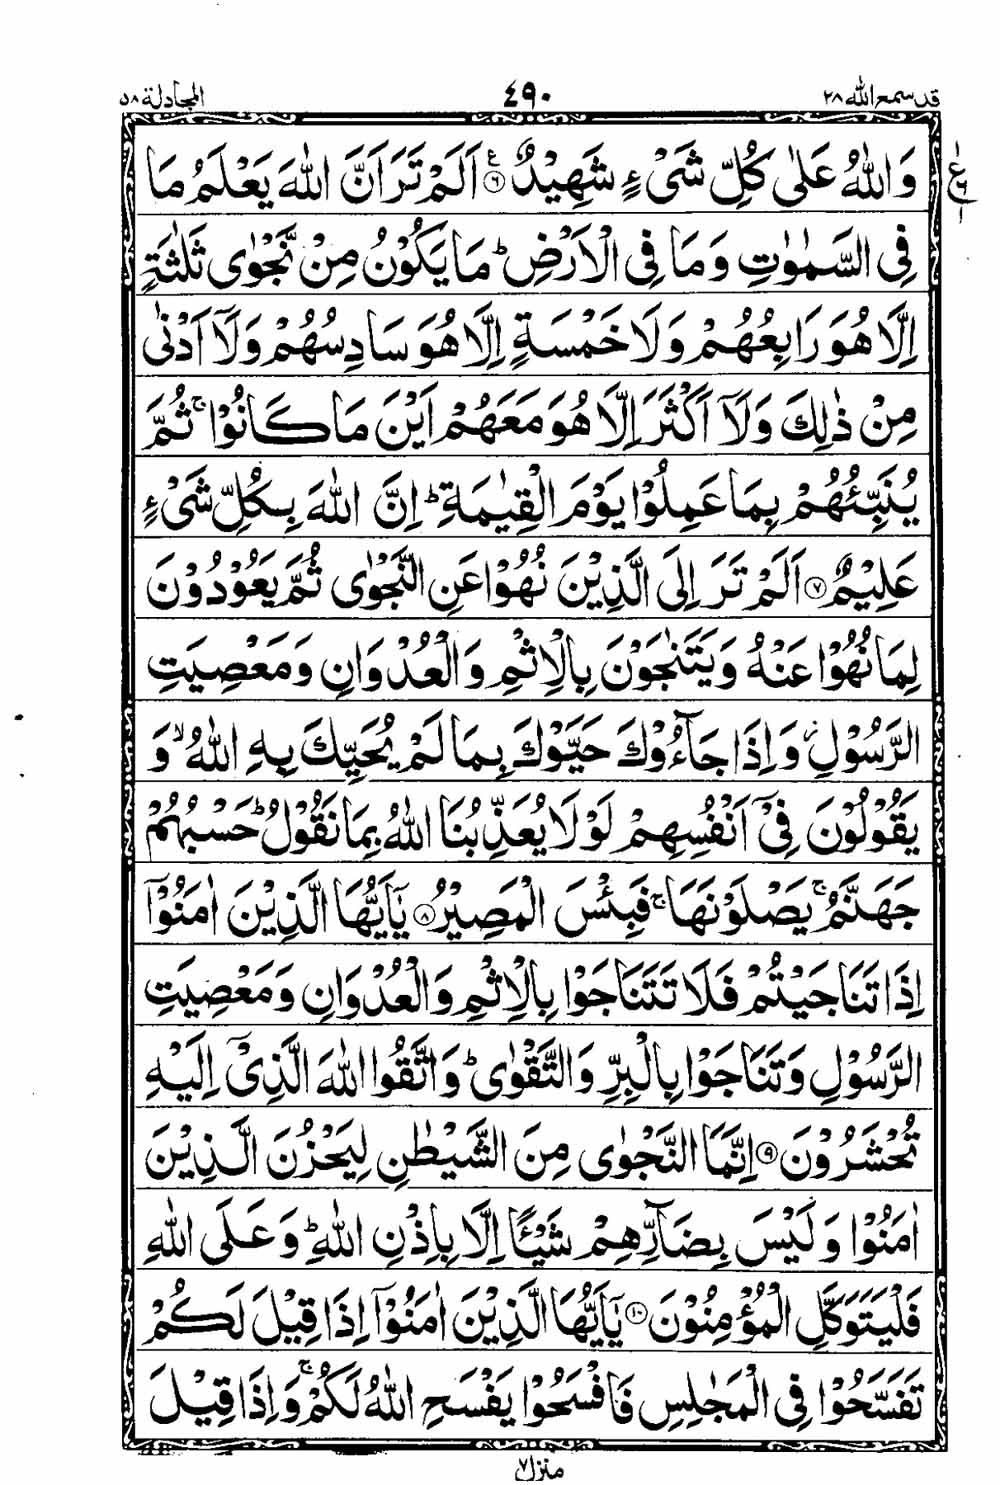 قد سمع الله ٢٨ ٤٩٠ المجادلة ٥٨
وَاللّٰهُ عَلٰى كُلِّ شَىْءٍ شَهِيْدٌ ۧ‏﴿٦﴾ اَلَمْ تَرَ اَنَّ اللّٰهَ يَعْلَمُ مَا
فِى السَّمٰوٰتِ وَمَا فِى الْاَرْضِؕ مَا يَكُوْنُ مِنْ نَّجْوٰى ثَلٰثَةٍ
اِلَّا هُوَ رَابِعُهُمْ وَلَا خَمْسَةٍ اِلَّا هُوَ سَادِسُهُمْ وَلَاۤ اَدْنٰى
مِنْ ذٰلِكَ وَلَاۤ اَكْثَرَ اِلَّا هُوَ مَعَهُمْ اَيْنَ مَا كَانُوْاۚ ثُمَّ
يُنَبِّئُهُمْ بِمَا عَمِلُوْا يَوْمَ الْقِيٰمَةِؕ اِنَّ اللّٰهَ بِكُلِّ شَىْءٍ
عَلِيْمٌ ﴿٧﴾ اَلَمْ تَرَ اِلَى الَّذِيْنَ نُهُوْا عَنِ النَّجْوٰى ثُمَّ يَعُوْدُوْنَ
لِمَا نُهُوْا عَنْهُ وَيَتَنٰجَوْنَ بِالْاِثْمِ وَالْعُدْوَانِ وَمَعْصِيَتِ
الرَّسُوْلِ وَاِذَا جَآءُوْكَ حَيَّوْكَ بِمَا لَمْ يُحَيِّكَ بِهِ اللّٰهُ ۙ وَ
يَقُوْلُوْنَ فِىْۤ اَنْفُسِهِمْ لَوْ لَا يُعَذِّبُنَا اللّٰهُ بِمَا نَقُوْلُؕ حَسْبُهُمْ
جَهَنَّمُۚ يَصْلَوْنَهَاۚ فَبِئْسَ الْمَصِيْرُ ﴿٨﴾ يٰۤاَيُّهَا الَّذِيْنَ اٰمَنُوْۤا
اِذَا تَنَاجَيْتُمْ فَلَا تَتَنَاجَوْا بِالْاِثْمِ وَالْعُدْوَانِ وَمَعْصِيَتِ
الرَّسُوْلِ وَتَنَاجَوْا بِالْبِرِّ وَالتَّقْوٰىؕ وَاتَّقُوا اللّٰهَ الَّذِىْۤ اِلَيْهِ
تُحْشَرُوْنَ ﴿٩﴾ اِنَّمَا النَّجْوٰى مِنَ الشَّيْطٰنِ لِيَحْزُنَ الَّذِيْنَ
اٰمَنُوْا وَلَيْسَ بِضَآرِّهِمْ شَيْـًٔا اِلَّا بِاِذْنِ اللّٰهِؕ وَعَلَى اللّٰهِ
فَلْيَتَوَكَّلِ الْمُؤْمِنُوْنَ ﴿١٠﴾ يٰۤاَيُّهَا الَّذِيْنَ اٰمَنُوْۤا اِذَا قِيْلَ لَكُمْ
تَفَسَّحُوْا فِى الْمَجٰلِسِ فَافْسَحُوْا يَفْسَحِ اللّٰهُ لَكُمْۚ وَاِذَا قِيْلَ
منزل ٧